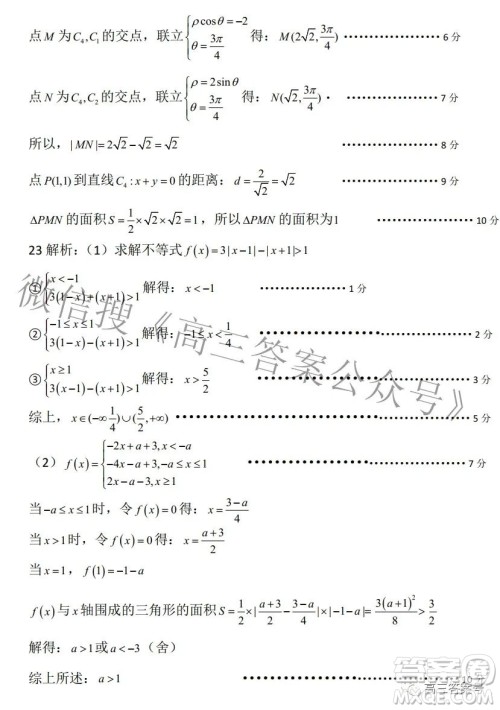 点 M 为 C₄,C₁ 的交点，联立 {ρcosθ=-2 θ=3π/4 得：M(2√2, 3π/4) 6 分
点 N 为 C₄,C₂ 的交点，联立 {ρ=2sinθ θ=3π/4 得：N(√2, 3π/4)· 7 分
所以，|MN|=2√2-√2=√2 8 分
点 P(1,1) 到直线 C₄:x+y=0 的距离：d=2/√2=√2 9 分
ΔPMN 的面积 S=1/2×√2×√2=1，所以 ΔMON 的面积为1 10 分
23 解析：（1）求解不等式 f(x)=3|x-1|-|x+1|>1
①{x<-1 3(1-x)+(x+1)>1 解得：x<-1 1 分
②{-1≤x≤1 3(1-x)-(x+1)>1 解得：-1≤x<1/4 2 分
③{x≥1 3(x-1)-(x+1)>1 解得：x>5/2 3 分
综上，x∈(-∞, 1/4)∪(5/2,+∞) 5 分
（2） f(x)={-2x+a+3,x<-a -4x-a+3,-a≤x≤1 2x-a-3,x≥1 7 分
当 -a≤x≤1 时，令 f(x)=0 得：x=(3-a)/4
当 x>1 时，令 f(x)=0 得：x=(a+3)/2
当 x=1，f(1)=-1-a
f(x) 与 x 轴围成的三角形的面积 S=1/2×|(a+3)/2-(3-a)/4|×|-1-a|=3(a+1)²/8>3/2
解得：a>1 或 a<-3（舍）
综上所述：a>1 10 分
微信搜《高三答案公众号》
高三答案号